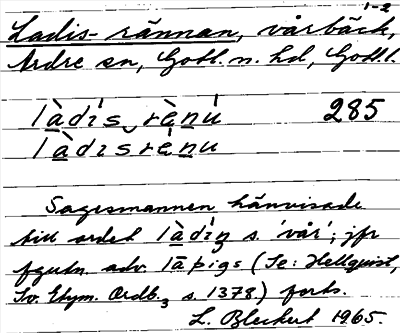 1-2
Ladis-rännan, vårbäck,
Ardre sn, Gotl. n. hd, Gotl. l.
làdi's rènu' 285
làdɪsrènu
Sagesmannen hänvisade
till ordet làdɪʒ s. 'vår'; jfr
fgutn. adv. lāþigs (Se: Hellquist,
Sv. Etym. Ordb.3 s. 1378) forts.
L. Bleckert 1965.